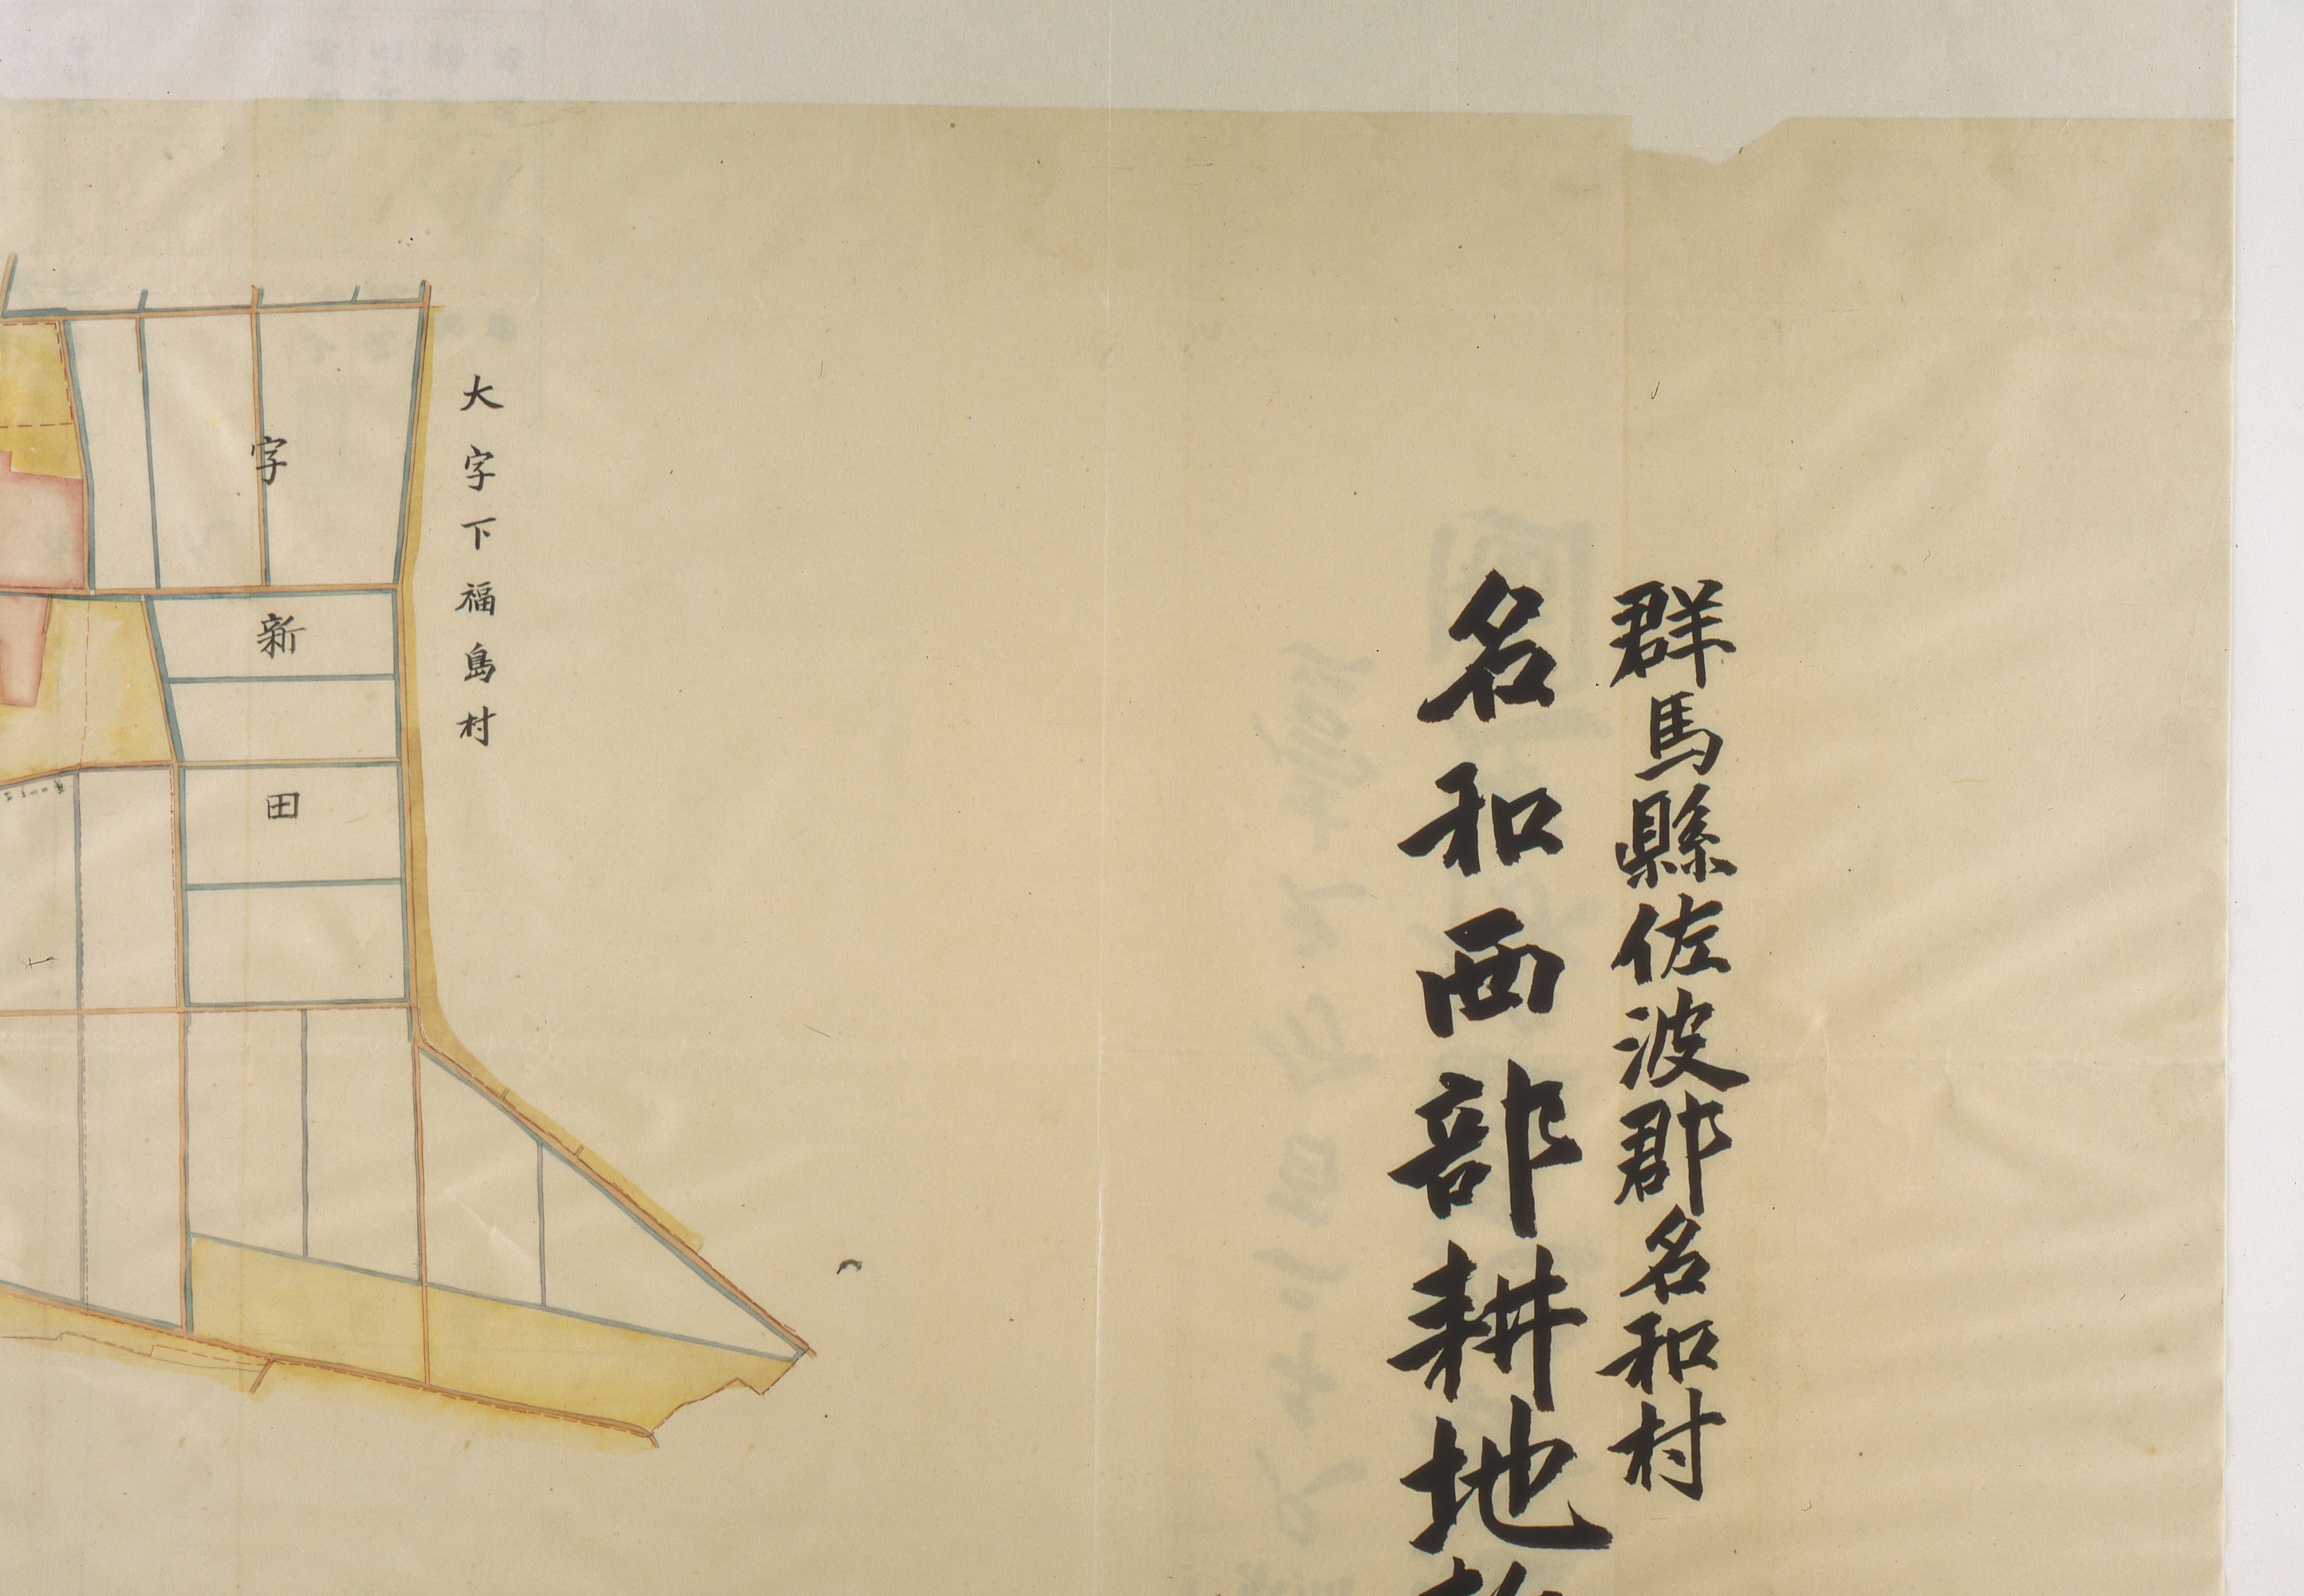 群馬縣佐波郡名和村
名和西部耕地
大字下福島村
字新田